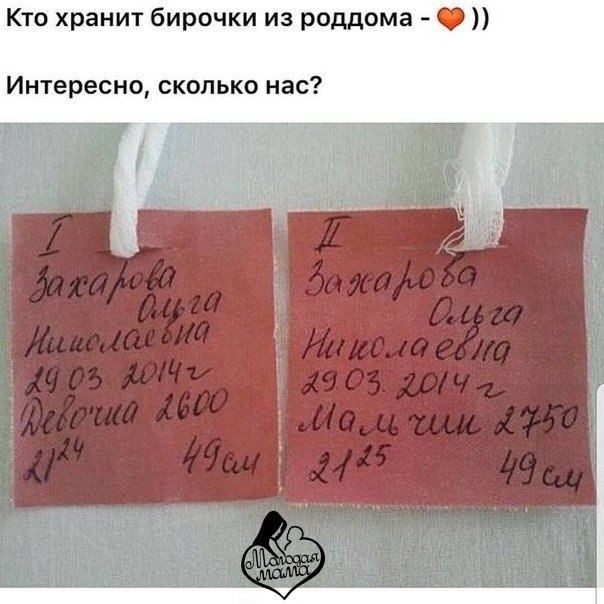 Кто хранит бирочки из роддома - ❤️ ))
Интересно, сколько нас?
I
Захарова
Ольга
Николаевна
29 03 2014 г
Девочка 2600
21 24 49 см
II
Захарова
Ольга
Николаевна
29 03. 2014 г
Мальчик 2750
21 25 49 см
Молодая
мама